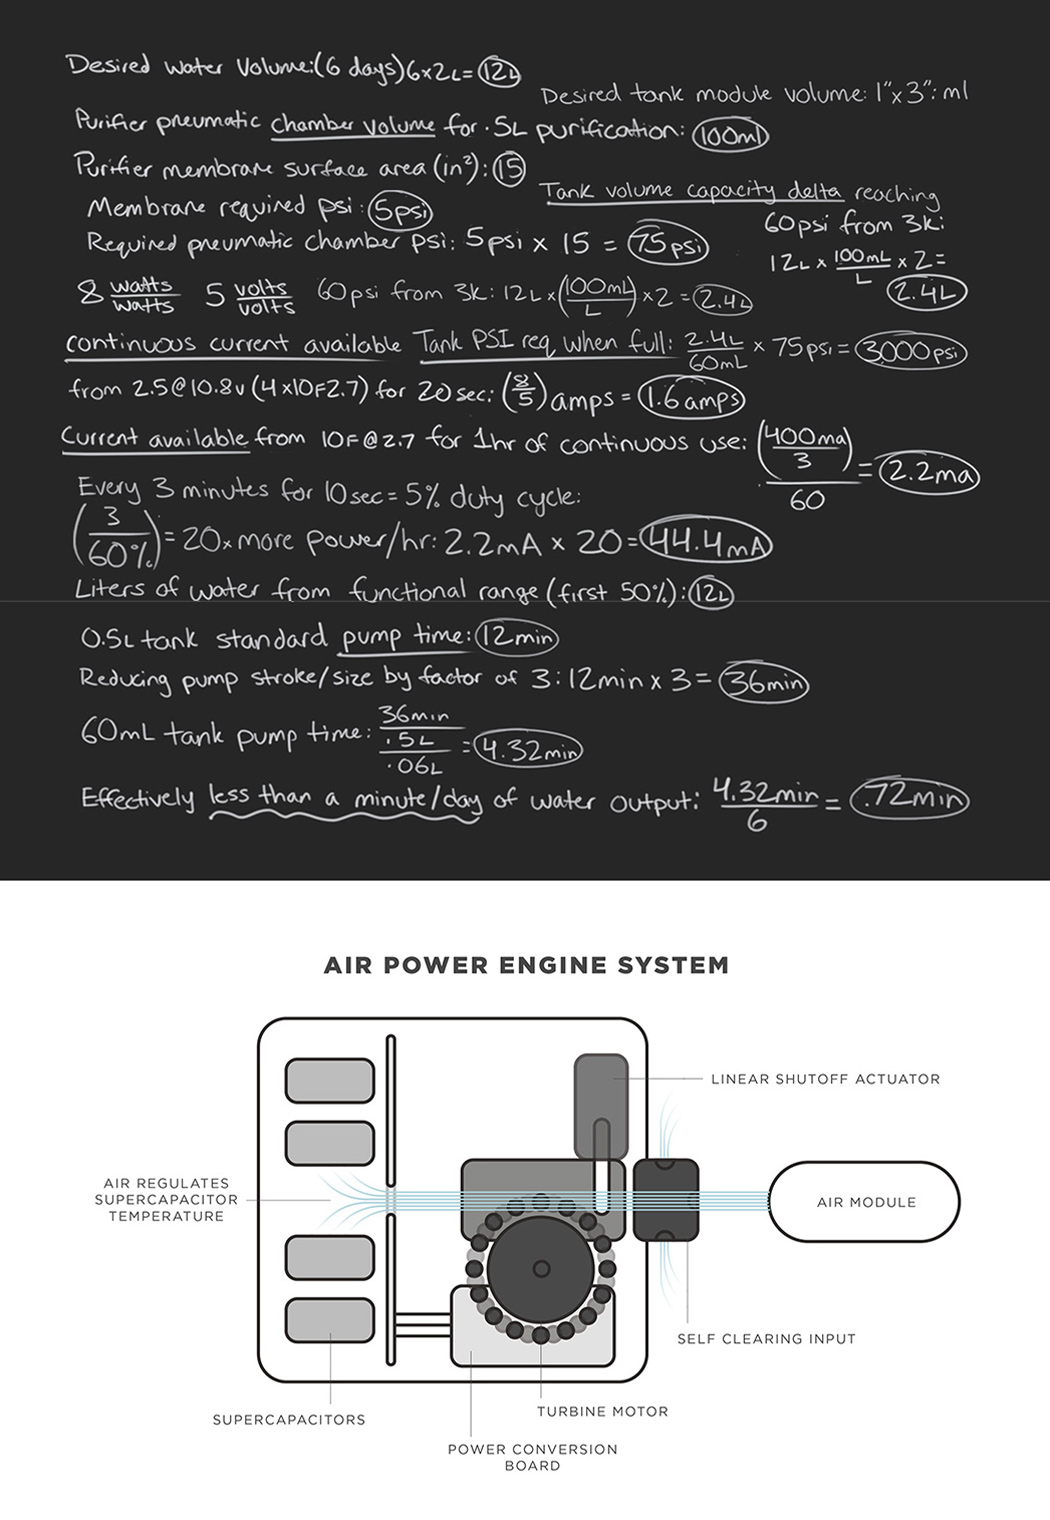 Desired Water Volume:(6 days)6x2L=12L
Desired tank module volume: 1"x3": ml
Purifier pneumatic chamber volume for .5L purification: 100ml
Purifier membrane surface area (in²): 15
Tank volume capacity delta reaching
60psi from 3k:
12L x 100mL/L x 2 =
2.4L
Membrane required psi: 5psi
Required pneumatic chamber psi: 5psi x 15 = 75psi
8 watts/watts 5 volts/volts 60psi from 3k: 12L x (100mL/L) x 2 = 2.4L
continuous current available Tank PSI req when full: 2.4L/60mL x 75psi = 3000psi
from 2.5@10.8v (4x10F2.7) for 20sec: (8/5) amps = 1.6amps
Current available from 10F@2.7 for 1hr of continuous use: (400ma/3)/60 = 2.2ma
Every 3 minutes for 10sec = 5% duty cycle:
(3/60%) = 20x more power/hr: 2.2mA x 20 = 44.4mA
Liters of water from functional range (first 50%): 12L
0.5L tank standard pump time: 12min
Reducing pump stroke/size by factor of 3: 12min x 3 = 36min
60mL tank pump time: 36min/.5L/.06L = 4.32min
Effectively less than a minute/day of water output: 4.32min/6 = .72min
AIR POWER ENGINE SYSTEM
LINEAR SHUTOFF ACTUATOR
AIR REGULATES
SUPERCAPACITOR
TEMPERATURE
AIR MODULE
SELF CLEARING INPUT
SUPERCAPACITORS
TURBINE MOTOR
POWER CONVERSION
BOARD